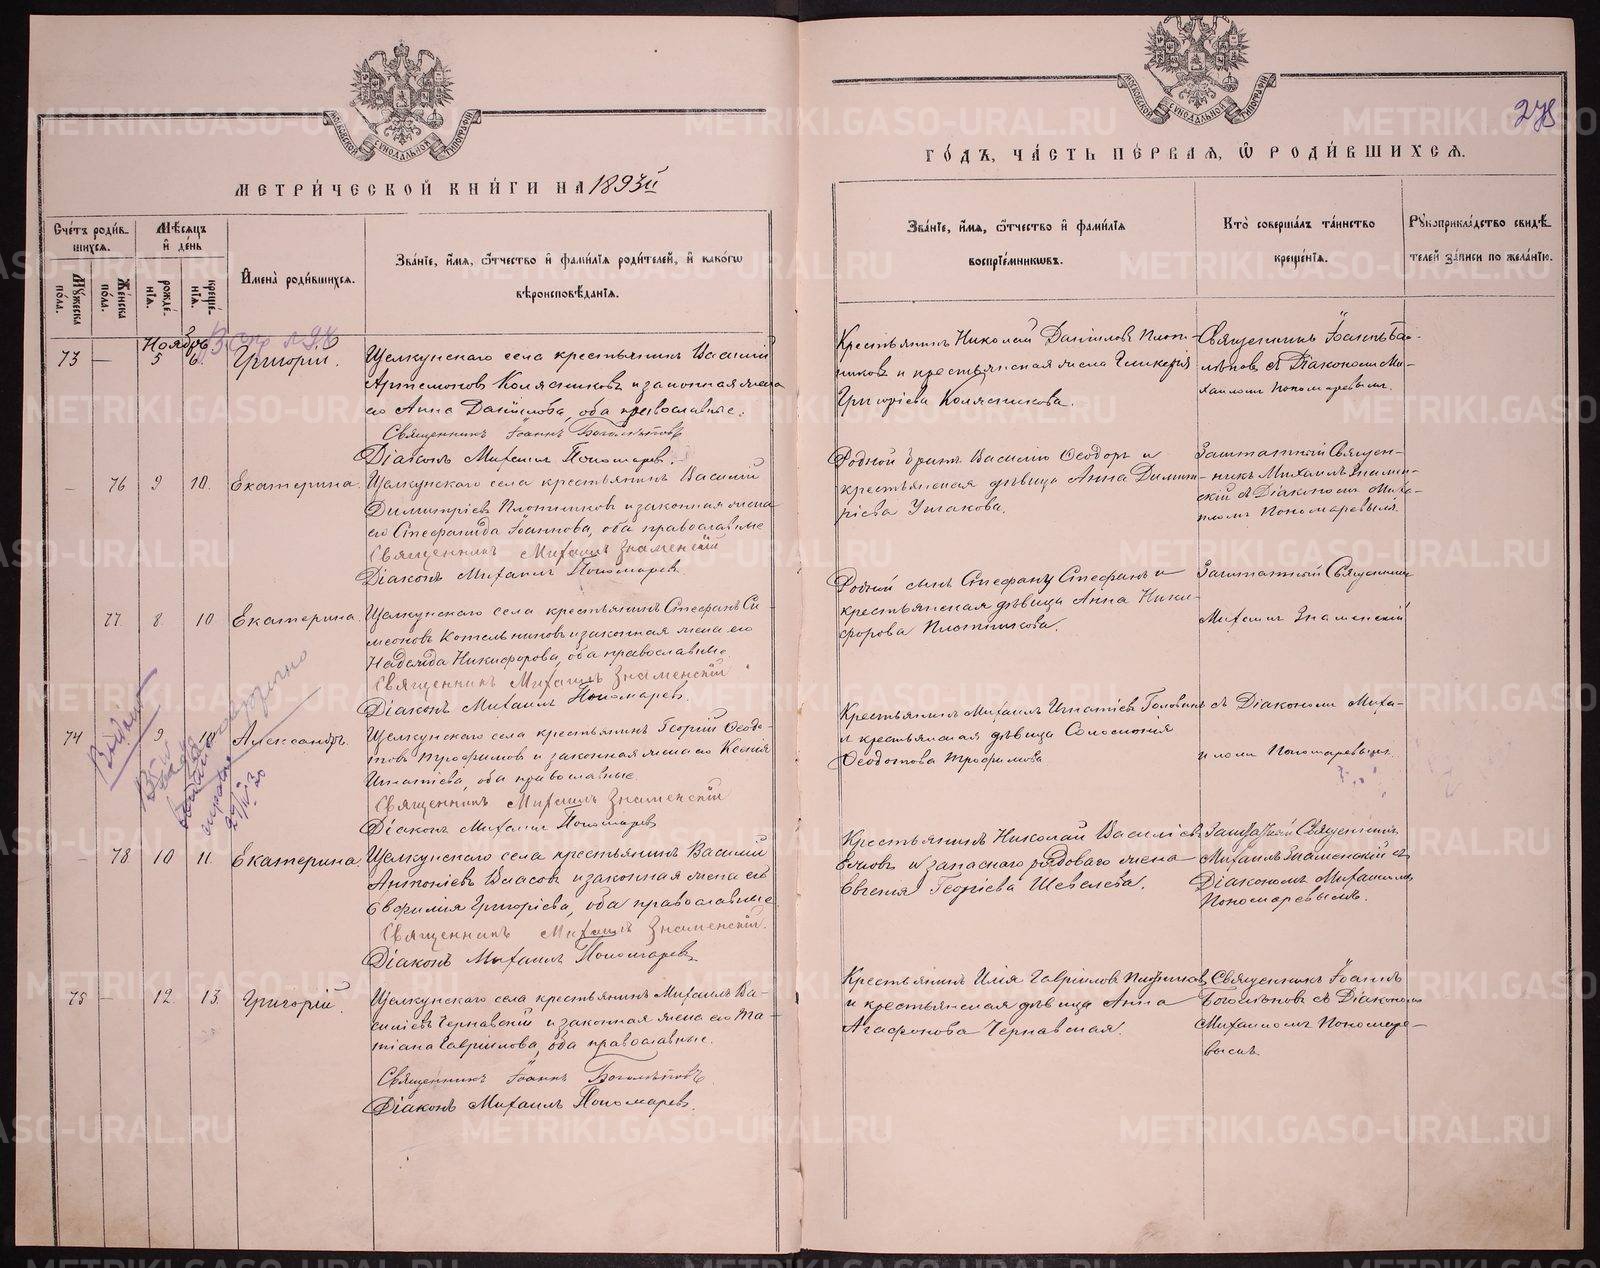 МОСКОВСКОЙ СУНОДАЛЬНОЙ ТИПОГРАФІИ
МЕТРИ́ЧЕСКОЙ КНИ́ГИ НА 1893й
Сче́тъ роди́в-
шихся.
Мѣсяцъ
и҆ де́нь
Му́жеска
по́ла.
Же́нска
по́ла.
рожде́-
нїѧ.
креще́-
нїѧ.
И҆мена̀ роди́вшихся.
Зва́нїе, и҆́мѧ, ѻ҆́тчество и҆ фамилїѧ роди́телей, и҆ како́гѡ
вѣроисповѣ́данїѧ.
Ноябрь
73 — 5 6. Григорій.
Щелкунскаго села крестьянинъ Василій
Артемоновъ Колясниковъ и законная жена
его Анна Даніилова, оба православные.
Священникъ Іоаннъ Боголѣповъ
Діаконъ Михаилъ Пономаревъ.
— 76 9 10. Екатерина.
Щелкунскаго села крестьянинъ Василій
Димитріевъ Плотниковъ и законная жена
его Стефанида Іоаннова, оба православные
Священникъ Михаилъ Знаменскій
Діаконъ Михаилъ Пономаревъ
77 8 10 Екатерина.
Щелкунскаго села крестьянинъ Стефанъ Си-
меоновъ Котельниковъ и законная жена его
Надежда Никифорова, оба православные.
Священникъ Михаилъ Знаменскій
Діаконъ Михаилъ Пономаревъ.
74 9 10 Александръ.
Щелкунскаго села крестьянинъ Георгій Ѳеодо-
товъ Трофимовъ и законная жена его Ксенія
Игнатіева, оба православные
Священникъ Михаилъ Знаменскій
Діаконъ Михаилъ Пономаревъ
— 78 10 11. Екатерина.
Щелкунскаго села крестьянинъ Василій
Антоніевъ Власовъ и законная жена его
Евфимія Григоріева, оба православные
Священникъ Михаилъ Знаменскій.
Діаконъ Михаилъ Пономаревъ
75 — 12. 13. Григорій.
Щелкунскаго села крестьянинъ Михаилъ Ва-
силіевъ Чернавскій и законная жена его Та-
тіана Гавріилова, оба православные.
Священникъ Іоаннъ Боголѣповъ.
Діаконъ Михаилъ Пономаревъ.
МОСКОВСКОЙ СУНОДАЛЬНОЙ ТИПОГРАФІИ
278
ГО́ДЪ, ЧА́СТЬ ПЕ́РВАѦ, Ѽ РОДИ́ВШИХСѦ.
Зва́нїе, и҆́мѧ, ѻ҆́тчество и҆ фами́лїѧ
воспрїе́мниковъ.
Кто̀ соверша́лъ та́инство
креще́нїѧ.
Рꙋкоприкла́дство свидѣ́-
телей за́писи по жела́нїю.
Крестьянинъ Николай Даніиловъ Плот-
никовъ и крестьянская жена Гликерія
Григоріева Колясникова.
Священникъ Іоаннъ Бого-
лѣповъ съ Діакономъ Ми-
хаиломъ Пономаревымъ.
Родной братъ Василію Ѳеодоръ и
крестьянская дѣвица Анна Димит-
ріева Ушакова.
Заштатный Священ-
никъ Михаилъ Знамен-
скій съ Діакономъ Миха-
иломъ Пономаревымъ.
Родной сынъ Стефану Стефанъ и
крестьянская дѣвица Анна Ники-
форова Плотникова.
Заштатный Священникъ
Михаилъ Знаменскій
Крестьянинъ Михаилъ Игнатіевъ Головинъ
и крестьянская дѣвица Соломонія
Ѳеодотова Трофимова
съ Діакономъ Миха-
иломъ Пономаревымъ.
Крестьянинъ Николай Василіевъ
и запаснаго рядоваго жена
Евгенія Георгіева Шевелева.
Заштатный Священникъ
Михаилъ Знаменскій съ
Діакономъ Михаиломъ
Пономаревымъ.
Крестьянинъ Илія Гавріиловъ
и крестьянская дѣвица Анна
Агафонова Чернавская.
Священникъ Іоаннъ
Боголѣповъ съ Діакономъ
Михаиломъ Пономаре-
вымъ.
METRIKI.GASO-URAL.RU